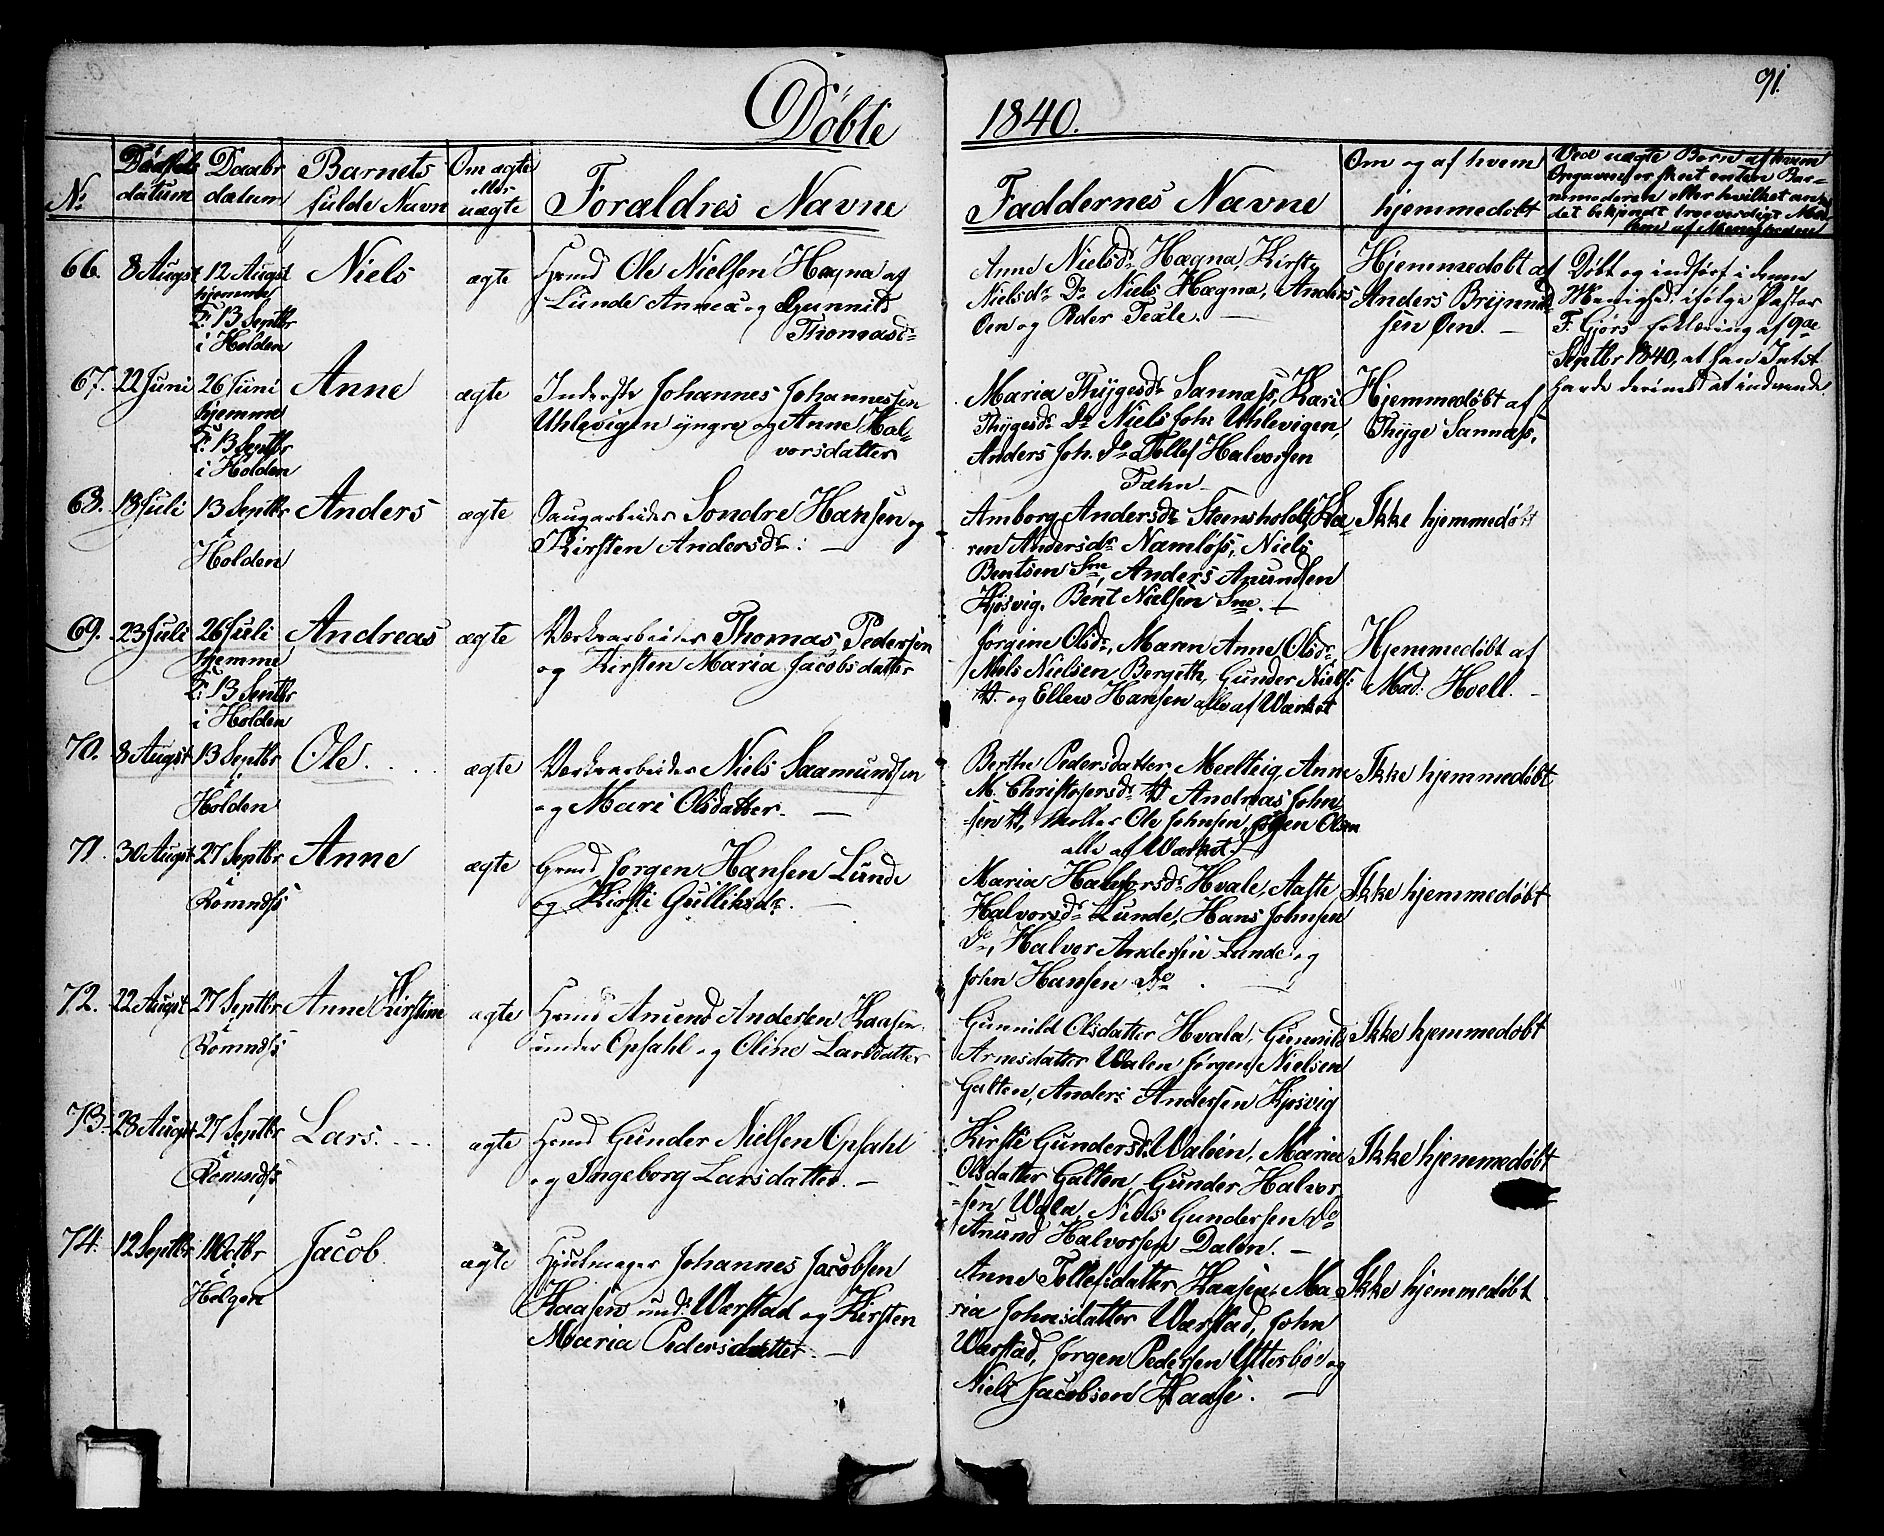 91.
Døbte 1840.
No
Fødsels datum
Daabs datum
Barnets fulde Navn
Om ægte eller uægte
Forældres Navne
Faddernes Navne
Om og af hvem hjemmedøbt
Ved uægte Børn af hvem
Opgaven er skeet enten Bar-
nemoderen eller hvilket an-
det bekjendt troeværdigt
af Menigheden
66. 8 Augst 12 Augst Niels ægte
hjemme
F: 13 Septbr
i Holden
Grmd Ole Nielsen Hægna af
Lunde Annex og Gunnild
Thomasdr
Anne Nielsdr Hægna, Kirsti
Nielsdr Do Niels Hægna, Anders
Øen og Peder Texle. —
Hjemmedøbt af
Anders Brynild
sen Øen. —
Døbt og indført i denne
Menighed ifølge Pastor
F. Gjørs Erklæring af 9de
Septbr 1840, at han Intet
havde derimod at indvende
67. 22 Juni 26 Juni Anne ægte
hjemme
F. 13 Septbr
i Holden
Inderste Johannes Johannessen
Uhlevigen yngre og Anne Hal-
vorsdatter
Maria Thygesdr Sannæss, Kari
Thygesdr Do Niels Johs Uhlevigen,
Anders Joh. Do Tollef Halvorsen
Tæhn —
Hjemmedøbt af
Thyge Sannæss,
68. 18 Juli 13 Septbr Anders ægte
i
Holden
Saugarbeider Sondre Hansen og
Kirsten Andersdr: —
Amborg Andersdr Steensholdt, Ka
ren Andersdr Namløss, Niels
Bentsen Sne, Anders Anundsen
Kjosvig, Bent Nielsen Sne. —
Ikke hjemmedøbt
69. 23 Juli 26 Juli Andreas ægte
hjemme
F: 13 Septbr
i Holden
Værksarbeider Thomas Pedersen
og Kirsten Maria Jacobsdatter
Jorgine Olsdr, Maren Anne Olsdr
Niels Nielsen Bergeth, Gunder Niels:
og Ellew Hansen alle af Værket
Hjemmedøbt af
Mad: Hoell. —
70. 8 Augst 13 Septbr Ole. ægte
i
Holden
Værksarbeider Niels Saamundsen
og Mari Olsdatter. —
Berthe Pedersdatter Meelteig, Anne
M. Christophersdr Andreas John-
sen Ole Johnsen, Olsen
alle af Værket.
Ikke hjemmedøbt
71. 30 Augst 27 Septbr Anne ægte
i
Romnæss
Grmd Jørgen Hansen Lunde
og Kirsti Gulliksdr. —
Maria Halvorsdr Hvale, Aaste
Halvorsdr Lunde, Hans Johnsen
Do, Halvor Andersen Lunde og
John Hansen Do —
Ikke hjemmedøbt
72. 22 Augst 27 Septbr Anne Kirstine ægte
i
Romnæss
Hmd Anund Andersen Haasen
under Opsahl og Oline Larsdatter
Gunnild Olsdatter Hvala, Gunnild
Arnesdatter Walen Jørgen Nielsen
Galten, Anders Andersen Kjosvig
Ikke hjemmedøbt
73. 28 Augst 27 Septbr Lars. ægte
i
Romnæss
Hmd Gunder Nielsen Opsahl
og Ingeborg Larsdatter. —
Kirsti Gundersdr Walen, Maria
Olsdatter Galten, Gunder Halvor
sen Wala, Niels Gundersen Do
Anund Halvorsen Dalen. —
Ikke hjemmedøbt
74. 12 Septbr 11 Octbr Jacob ægte
i
Helgen
Hjulmager Johannes Jacobsen
Haasen undr Wærstad og Kirsten
Maria Pedersdatter. —
Anne Tollefsdatter Haasen, Ma
ria Johnsdatter Wærstad, John
Wærstad, Jørgen Pedersen Ytterbøe og
Niels Jacobsen Haasi. —
Ikke hjemmedøbt